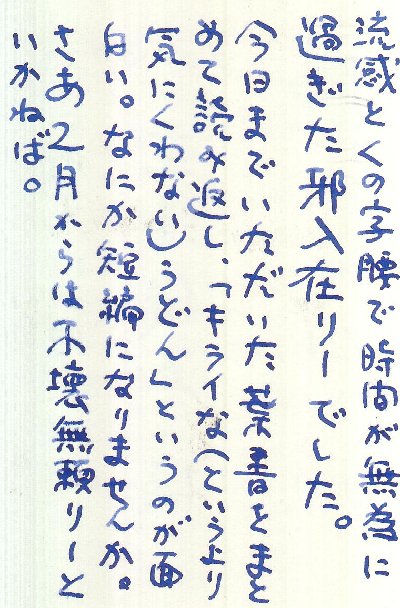 流感とくの字腰で時間が無為に
過ぎた邪入在りーでした。
今日までいただいた葉書をまと
めて読み返し、「キライな(というより
気にくわない)うどん」というのが面
白い。なにか短編になりませんか。
さあ2月からは不壊無頼りーと
いかねば。